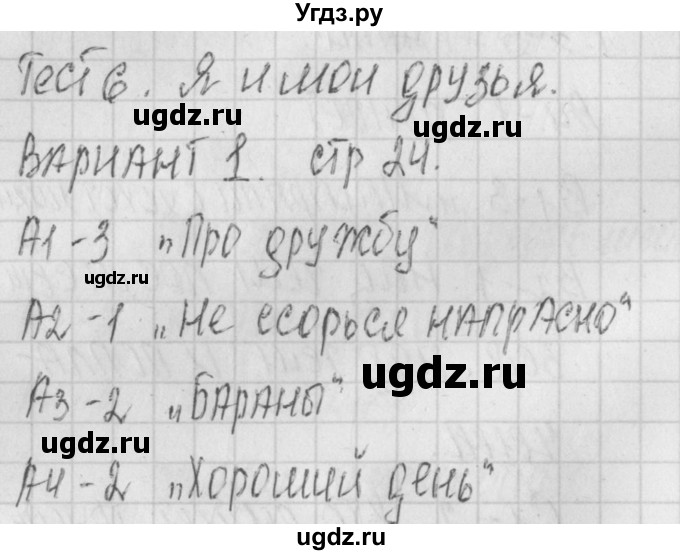 Угдз.ру
Тест 6. Я и мои друзья.
Вариант 1. стр 24.
А1-3 „Про дружбу“
ugdz.ru
ugdz.ru
А2-1 „Не ссорься напрасно“
ugdz.ru
А3-2 „Бараны“
ugdz.ru
А4-2 „Хороший день“
ugdz.ru